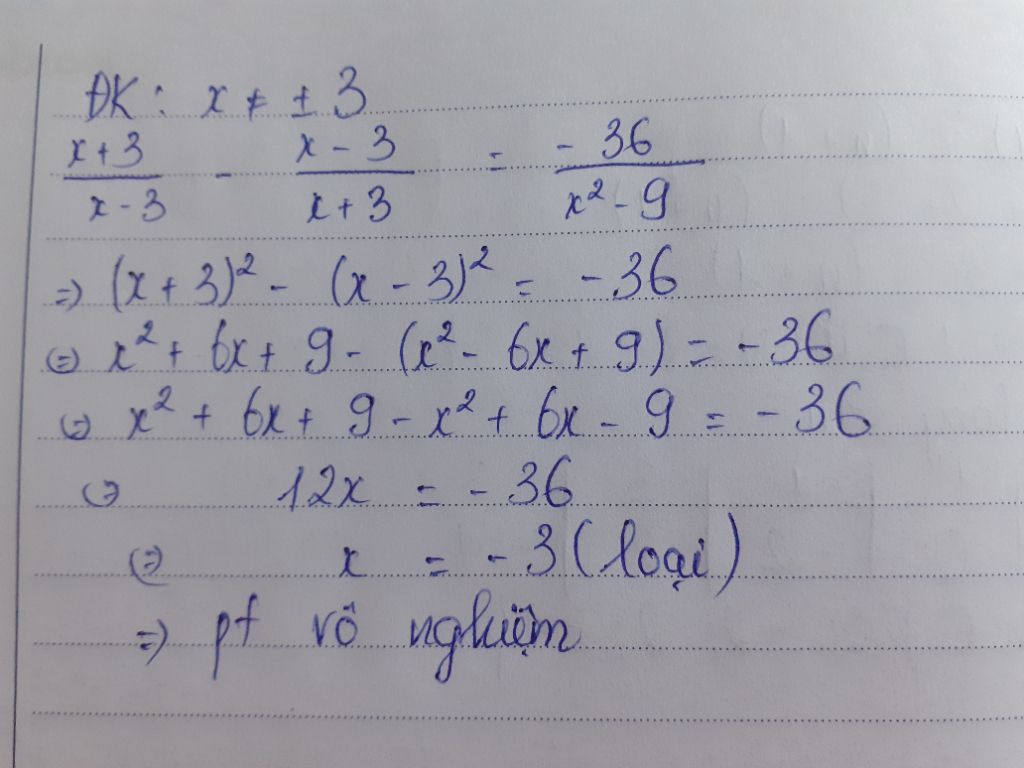 ĐK: x ≠ ± 3
(x+3)/(x-3) - (x-3)/(x+3) = -36/(x²-9)
=> (x+3)² - (x-3)² = -36
<=> x² + 6x + 9 - (x² - 6x + 9) = -36
<=> x² + 6x + 9 - x² + 6x - 9 = -36
<=> 12x = -36
<=> x = -3 (loại)
=> pt vô nghiệm